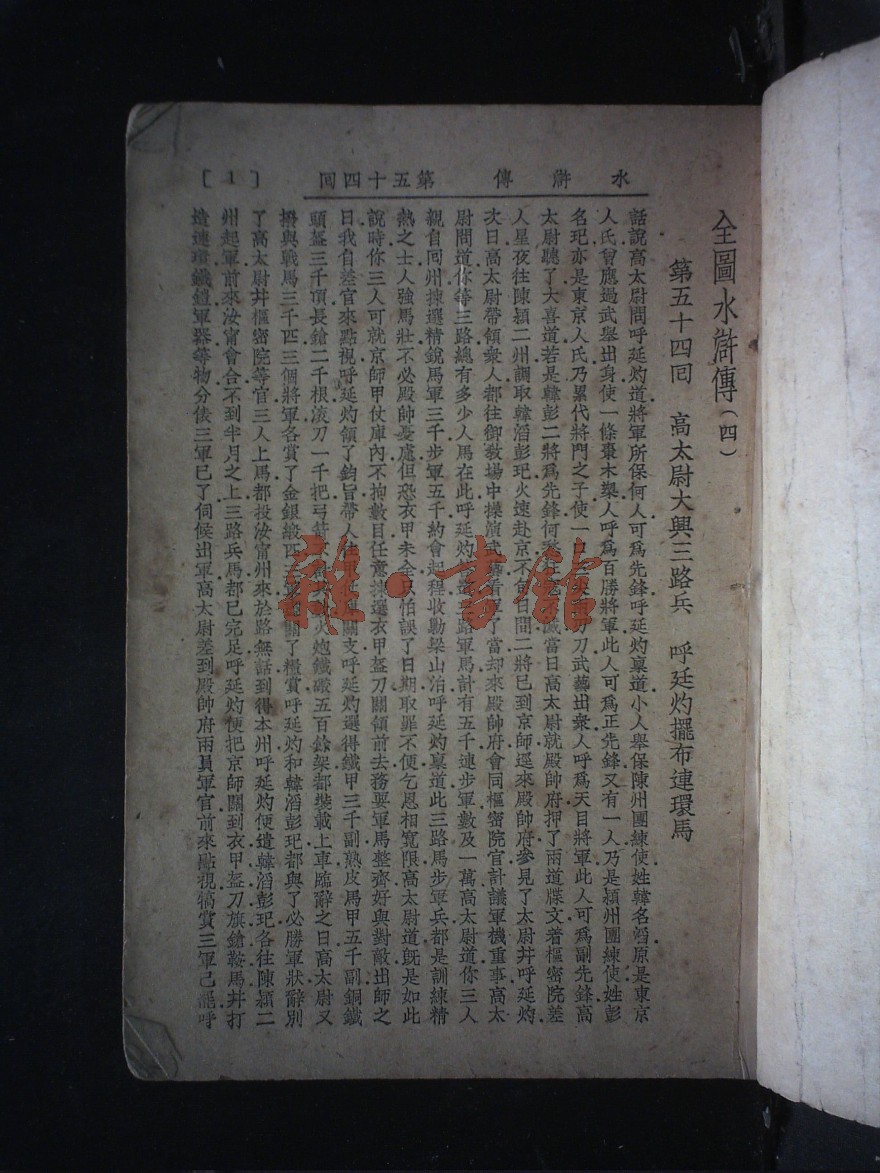 水滸傳 第五十四回 〔1〕
全圖水滸傳(四)
第五十四回 高太尉大興三路兵 呼延灼擺布連環馬
話說高太尉問呼延灼道將軍所保何人可爲先鋒呼延灼稟道小人舉保陳州團練使姓韓名滔原是東京
人氏曾應過武舉出身使一條棗木槊人呼爲百勝將軍此人可爲正先鋒又有一人乃是潁州團練使姓彭
名玘亦是東京人氏乃累代將門之子使一口三 刀武藝出衆人呼爲天目將軍此人可爲副先鋒高
太尉聽了大喜道若是韓彭二將爲先鋒何 滅當日高太尉就殿帥府押了兩道牒文着樞密院差
人星夜往陳潁二州調取韓滔彭玘火速赴京不 日間二將已到京師逕來殿帥府參見了太尉幷呼延灼
次日高太尉帶領衆人都往御敎場中操演武藝看軍了當却來殿帥府會同樞密院官計議軍機重事高太
尉問道你等三路總有多少人馬在此呼延灼 道三路軍馬計有五千連步軍數及一萬高太尉道你三人
親自回州揀選精銳馬軍三千步軍五千約會起程收勦梁山泊呼延灼稟道此三路馬步軍兵都是訓練精
熟之士人強馬壯不必殿帥憂慮但恐衣甲未全只怕誤了日期取罪不便乞恩相寬限高太尉道旣是如此
說時你三人可就京師甲仗庫內不拘數目任意揀選衣甲盔刀關領前去務要軍馬整齊好與對敵出師之
日我自差官來點視呼延灼領了鈞旨帶人往甲仗庫關支呼延灼選得鐵甲三千副熟皮馬甲五千副銅鐵
頭盔三千頂長鎗二千根滾刀一千把弓箭 火炮鐵礮五百餘架都裝載上車臨辭之日高太尉又
撥與戰馬三千匹三個將軍各賞了金銀緞匹 關了糧賞呼延灼和韓滔彭玘都與了必勝軍狀辭別
了高太尉幷樞密院等官三人上馬都投汝甯州來於路無話到得本州呼延灼便遣韓滔彭玘各往陳潁二
州起軍前來汝甯會合不到半月之上三路兵馬都已完足呼延灼便把京師關到衣甲盔刀旗鎗鞍馬幷打
造連環鐵鎧軍器等物分俵三軍已了伺候出軍高太尉差到殿帥府兩員軍官前來點視犒賞三軍已罷呼
雜·書館